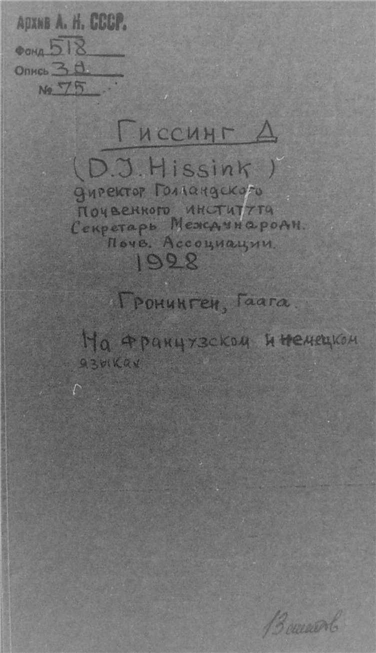 Архив А. Н. СССР.
Фонд 518
Опись 3д
№ 75
Гиссинг Д
(D.J. Hissink)
директор Голландского
Почвенного института
Секретарь Международн.
Почв. Ассоциации.
1928
Гронинген, Гаага.
На французском и немецком
языках